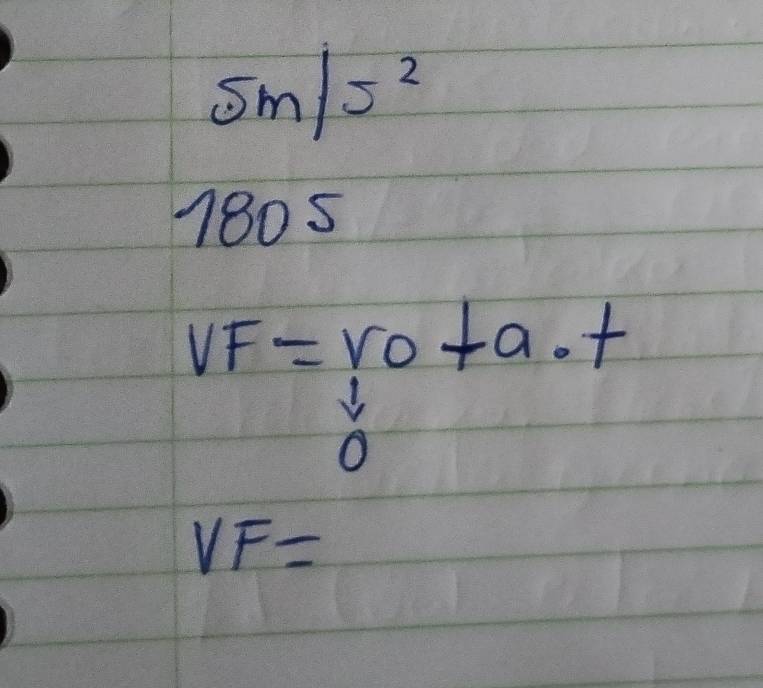 5m/s²
180 s
VF = vo + a . t
↓
0
VF =